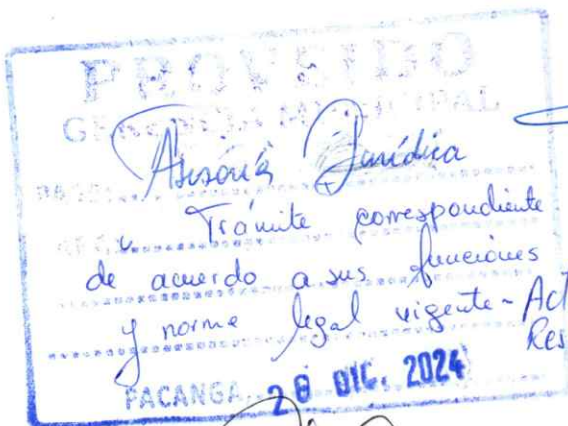 PROVEIDO
GERENCIA MUNICIPAL
Asesoría Jurídica
Trámite correspondiente
de acuerdo a sus funciones
y norma legal vigente - Act
Res
PACANGA, 28 DIC. 2024